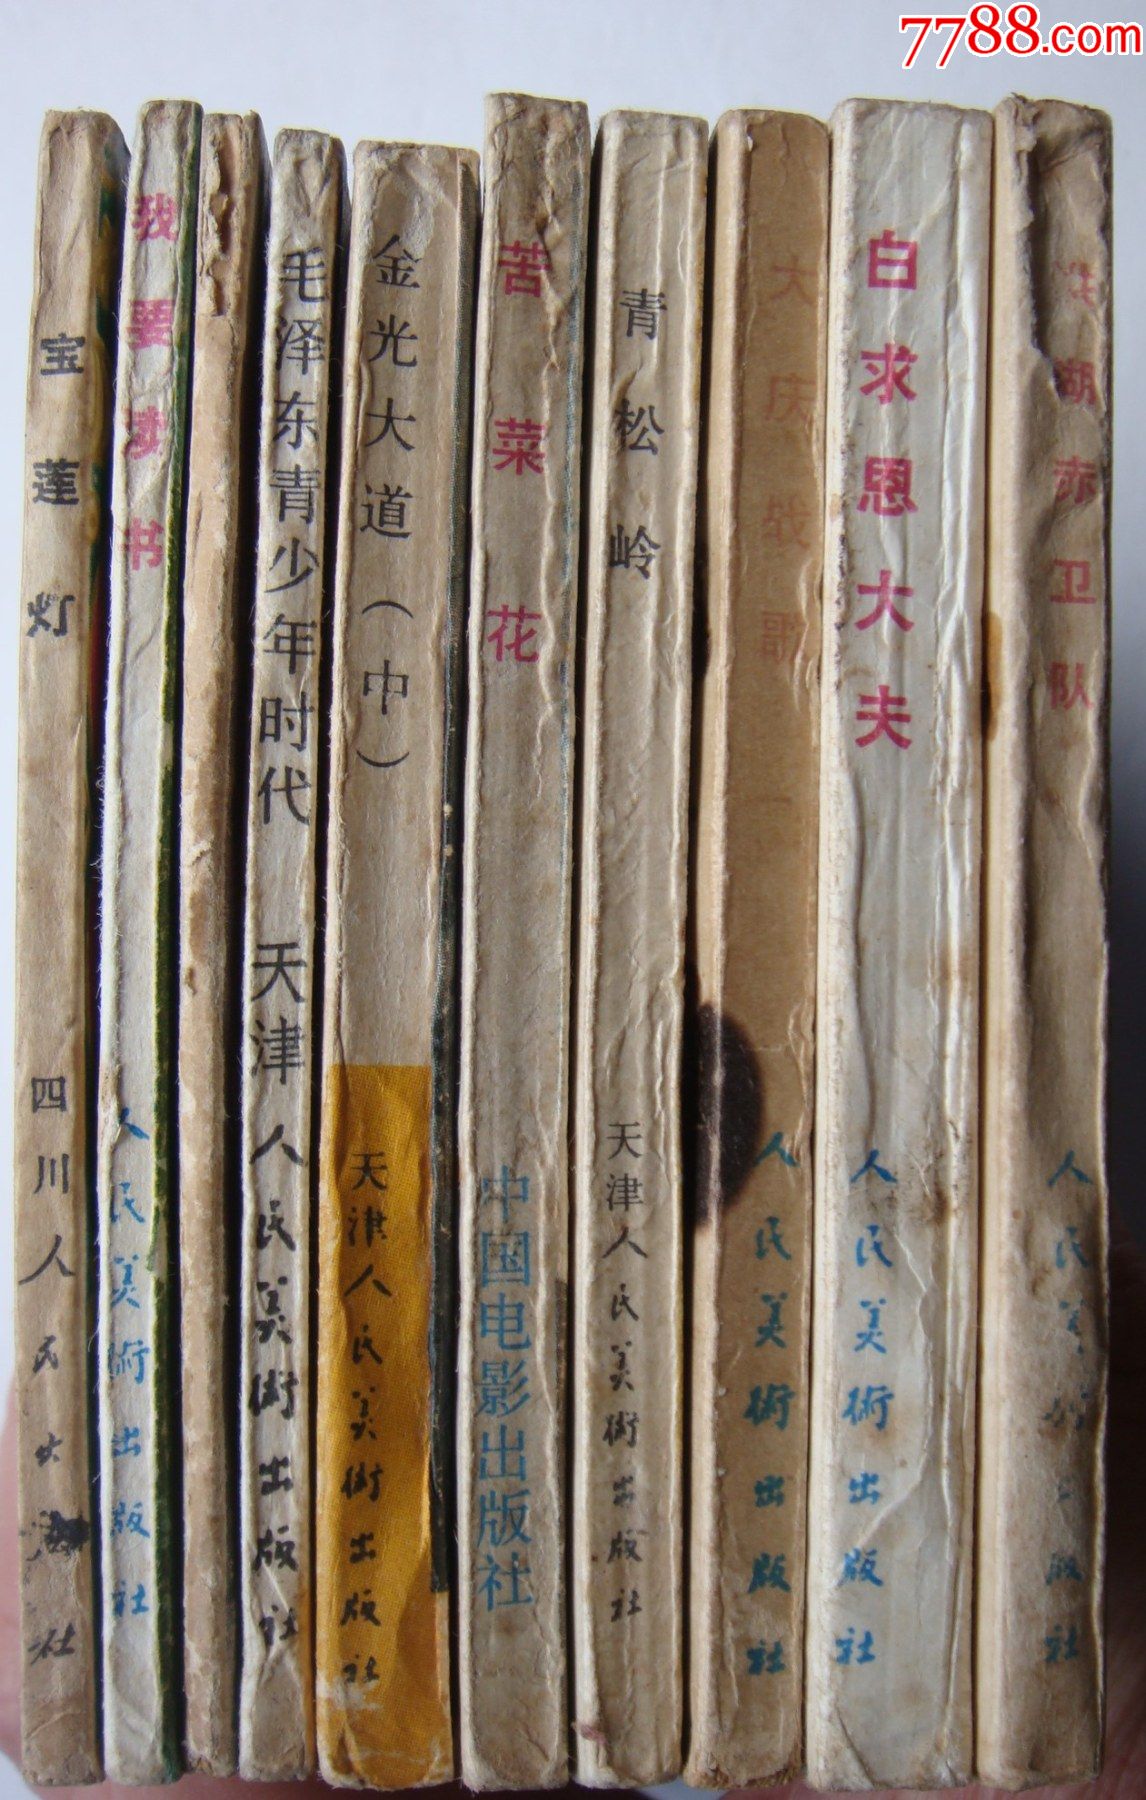 7788.com
宝莲灯
四川人民出版社
我要读书
人民美術出版社
毛泽东青少年时代
天津人民美術出版社
金光大道（中）
天津人民美術出版社
苦菜花
中国电影出版社
青松岭
天津人民美術出版社
大庆战歌 一
人民美術出版社
白求恩大夫
人民美術出版社
洪湖赤卫队
人民美術出版社